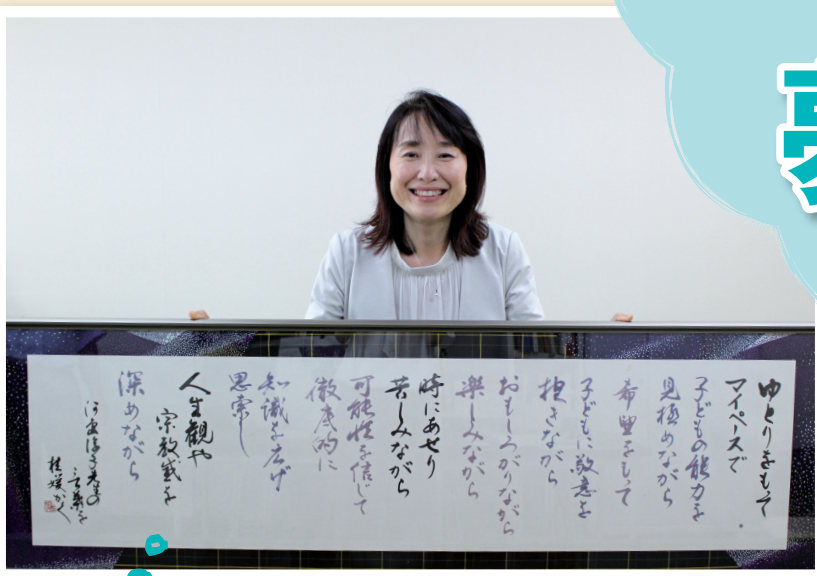 ゆとりをもって
マイペースで
子どもの能力を
見極めながら
希望をもって
子どもに敬意を
抱きながら
おもしろがりながら
楽しみながら
時にあせり
苦しみながら
可能性を信じて
徹底的に
知識を広げ
思索し
人生観や
宗教感を
深めながら
言葉を